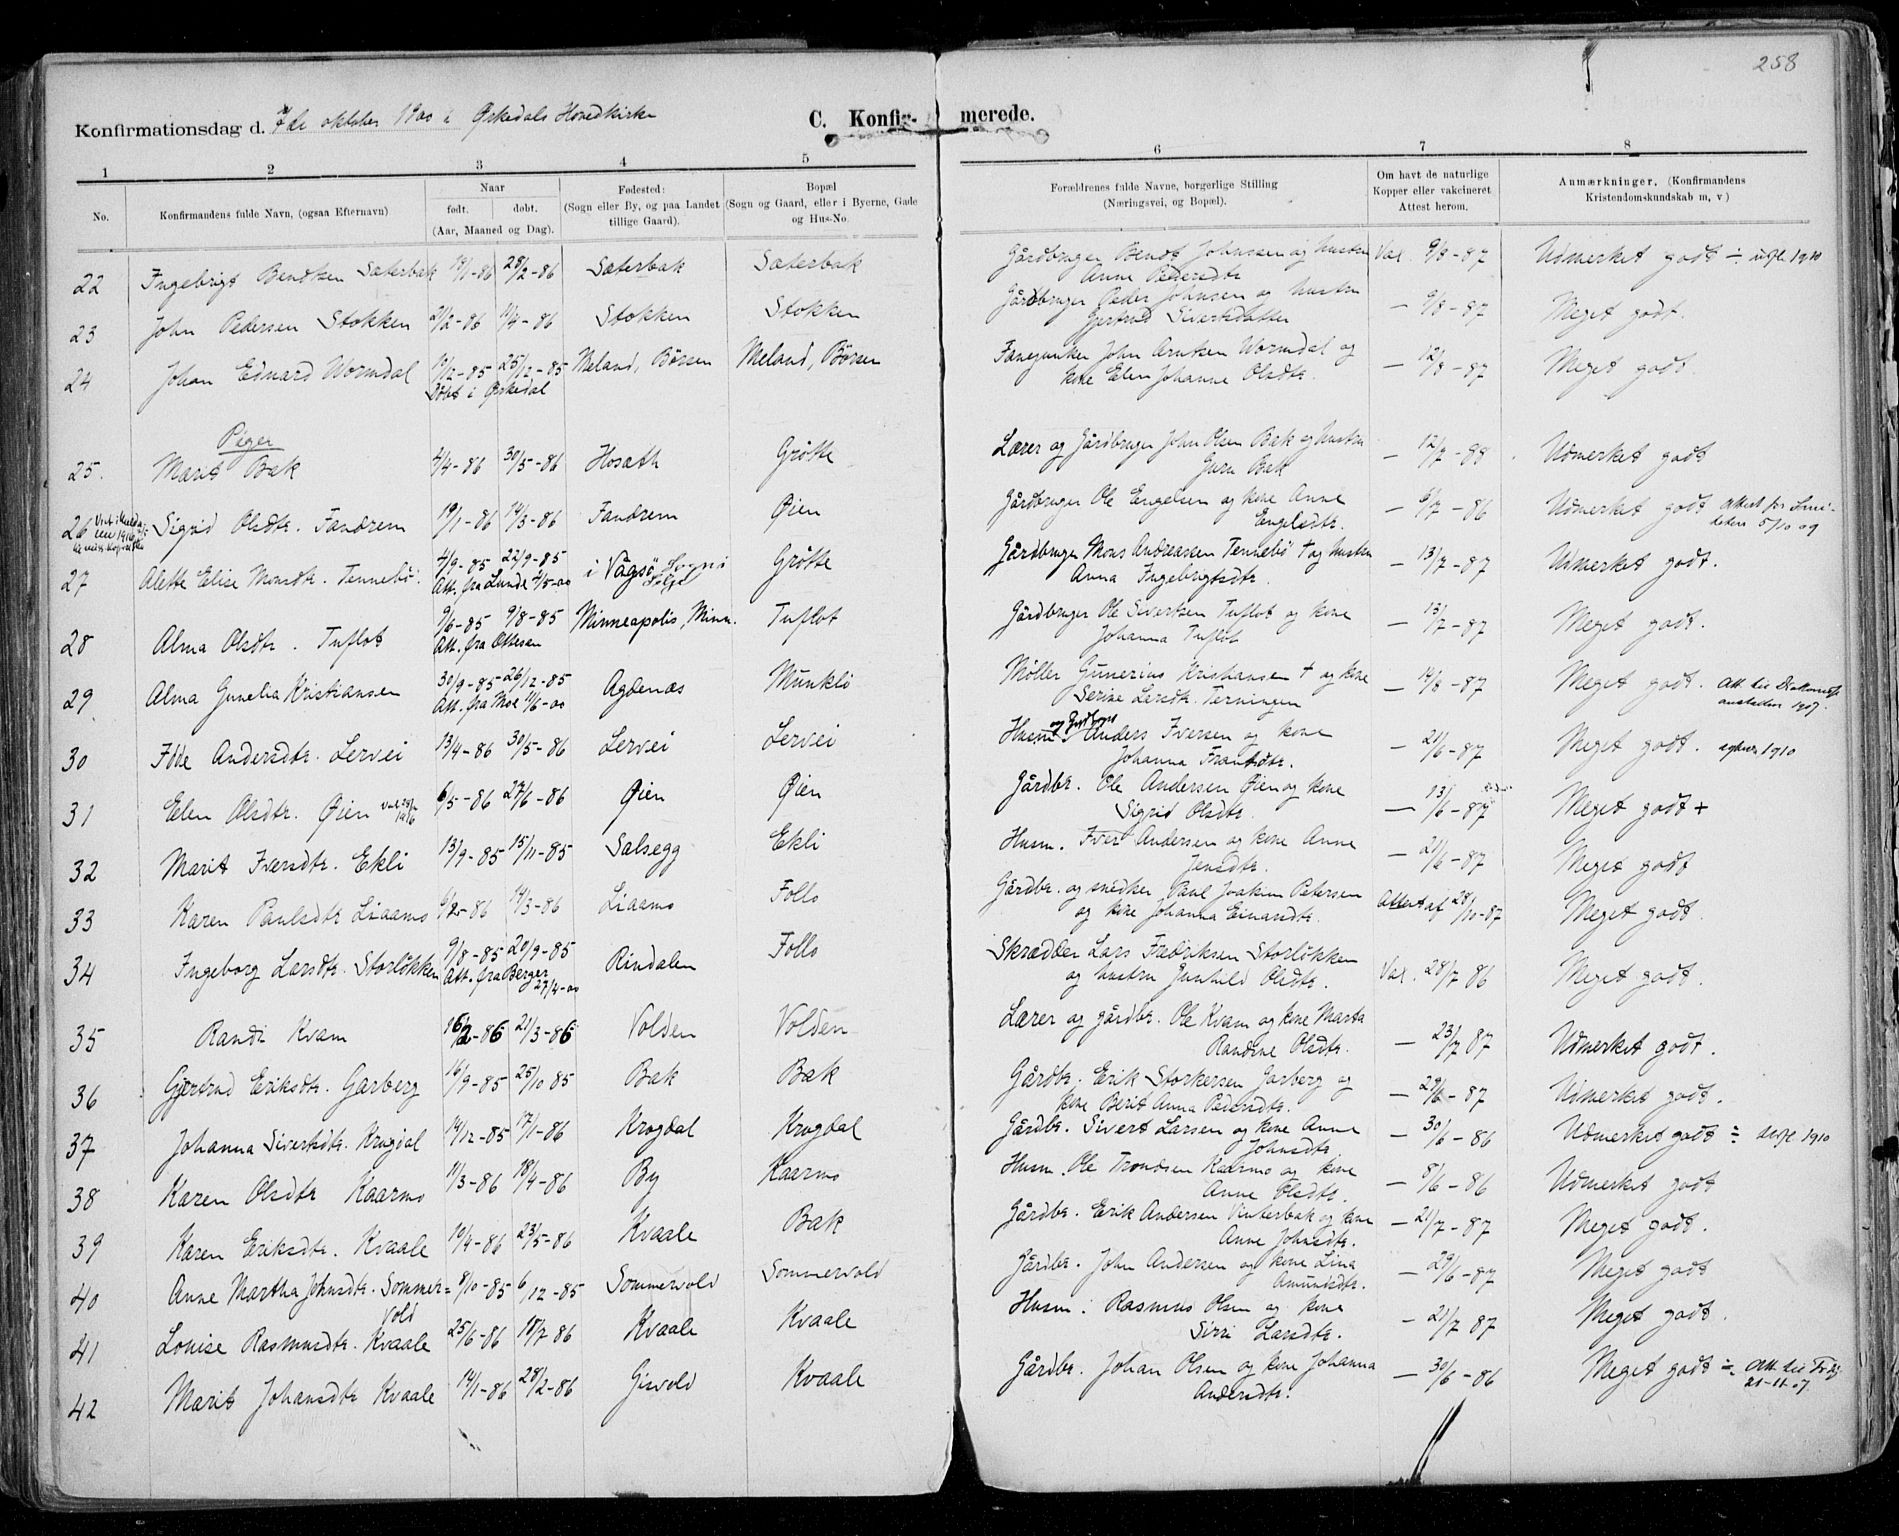 258
Konfirmationsdag d. 7de oktober 1900 i Ørkedals Hovedkirke
C. Konfirmerede.
1 2 3 4 5 6 7 8
No.
Konfirmandens fulde Navn, (ogsaa Efternavn)
Naar
født. døbt.
(Aar, Maaned og Dag).
Fødested:
(Sogn eller By, og paa Landet
tillige Gaard).
Bopæl
(Sogn og Gaard, eller i Byerne, Gade
og Hus-No.
Forældrenes fulde Navne, borgerlige Stilling
(Næringsvei, og Bopæl).
Om havt de naturlige
Kopper eller vakcineret
Attest herom.
Anmærkninger. (Konfirmandens
Kristendomskundskab m, v)
22 Ingebrigt Bendtsen Sæterbak 18/1-86 28/2-86 Sæterbak Sæterbak Gårdbruger Bendt Johnsen og hustru Vac. 9/8-87 Udmerket godt ÷ 1910
Anne Pedersdtr
23 John Pedersen Stokken 21/2-86 11/4-86 Stokken Stokken Gårdbruger Peder Johnsen og hustru — 9/8-87 Meget godt.
Gjertrud Sivertsdatter
24 Johan Edvard Wormdal 12/2-85 25/12-85 Meland, Børsen Meland, Børsen Fanejunker John Arntsen Wormdal og — 12/8-87 Meget godt.
Døbt i Ørkedal kone Elen Johanne Olsdtr.
Piger
25. Marit Bak 4/4-86 30/5-86 Hosæth Grøtte Lærer og Gårdbruger John Olsen Bak og hustru — 12/7-88 Udmerket godt
Guru Bak
26 Sigrid Olsdtr. Fandrem 19/1-86 14/3-86 Fandrem Øien Gårdbruger Ole Engelsen og kone Anne — 6/7-86 Udmerket godt attest for 5/10 09
Engelsdtr.
27 Alette Elise Monsdtr. Tennebø. 4/9-85 22/9-85 i Vågsø Sogn Grøtte Gårdbruger Mons Andreassen Tennebø † og hustru — 13/7-87 Udmerket godt.
Att. fra Lunde 2/5-00 Anna Ingebrigtsdtr.
28 Alma Olsdtr. Tuflot 9/6-85 9/8-85 Minneapolis, Minn. Tuflot Gårdbruger Ole Sivertsen Tuflot og kone — 13/7-87 Meget godt.
Att. fra Ottesen Johanna Tuflot
29 Alma Gunelia Kristiansen 30/9-85 26/12-85 Agdenæs Munklø Møller Gunerius Kristiansen † og kone — 14/8-87 Meget godt. Att. til Diakonissanstalten 1907.
Att. fra Moe 11/6-00 Serine Larsdtr. Terningen
30 Ide Andersdtr. Lervei 13/4-86 30/5-86 Lervei Lervei Husm. og Gjæstgiver Anders Iversen og kone — 21/6-87 Meget godt. 1910
Johanna Frantsdtr.
31 Elen Olsdtr. Øien 6/5-86 27/6-86 Øien Øien Gårdbr. Ole Andersen Øien og kone — 13/6-87 Meget godt +
Sigrid Olsdtr.
32 Marit Iversdtr. Ekli 13/9-85 15/11-85 Salsegg Ekli Husm. Iver Andersen og kone Anne — 21/6-87 Meget godt
Jensdtr.
33 Karen Paulsdtr Liaamo 6/2-86 14/3-86 Liaamo Follo Gårdbr. og snedker Paul Joakim Petersen Attest af 28/10-87 Meget godt.
og kone Johanna Einarsdtr.
34 Ingeborg Larsdtr. Storløkken 9/8-85 20/9-85 Rindalen Follo Skrædder Lars Fredriksen Storløkken Vac. 28/7 86 Meget godt.
Att. fra Berger 27/4-00 og hustru Gunhild Olsdtr.
35 Randi Kvam 16/2-86 21/3-86 Volden Volden Lærer og gårdbr. Ole Kvam og kone Marta — 23/7 87 Udmerket godt.
Randine Olsdtr.
36 Gjertrud Eriksdtr. Garberg 16/9-85 25/10 85 Bak Bak Gårdbr. Erik Storkersen Garberg og — 29/6-87 Udmerket godt.
kone Berit Anna Pedersdtr.
37 Johanna Sivertsdtr. Krogdal 14/12-85 17/1-86 Krogdal Krogdal Gårdbr. Sivert Larsen og kone Anne — 30/6-86 Udmerket godt ÷ 1910
Johnsdtr
38 Karen Olsdtr Kaarmo 11/3-86 18/4-86 By Kaarmo Husm. Ole Trondsen Kaarmo og kone — 8/6-86 Udmerket godt
Anne Olsdtr.
39 Karen Eriksdtr. Kvaale 10/4-86 23/5-86 Kvaale Bak Gårdbr. Erik Andersen Vinterbak og kone — 21/7-87 Meget godt.
Anne Johnsdtr.
40 Anne Martha Johnsdtr. Sommervold 8/10-85 6/12-85 Sommervold Sommervold Gårdbr. John Andersen og kone Lina — 29/6-87 Meget godt
Amundsdtr.
41 Louise Rasmusdtr. Kvaale 25/6-86 18/7 86 Kvaale Kvaale Husm. Rasmus Olsen og kone — 21/7 87 Meget godt.
Siri Larsdtr.
42 Marit Johansdtr Kvaale 14/1-86 28/2-86 Gisvold Kvaale Gårdbr. Johan Olsen og kone Johanna — 30/6-86 Meget godt ÷ Att. til 21-11-07.
Andersdtr.